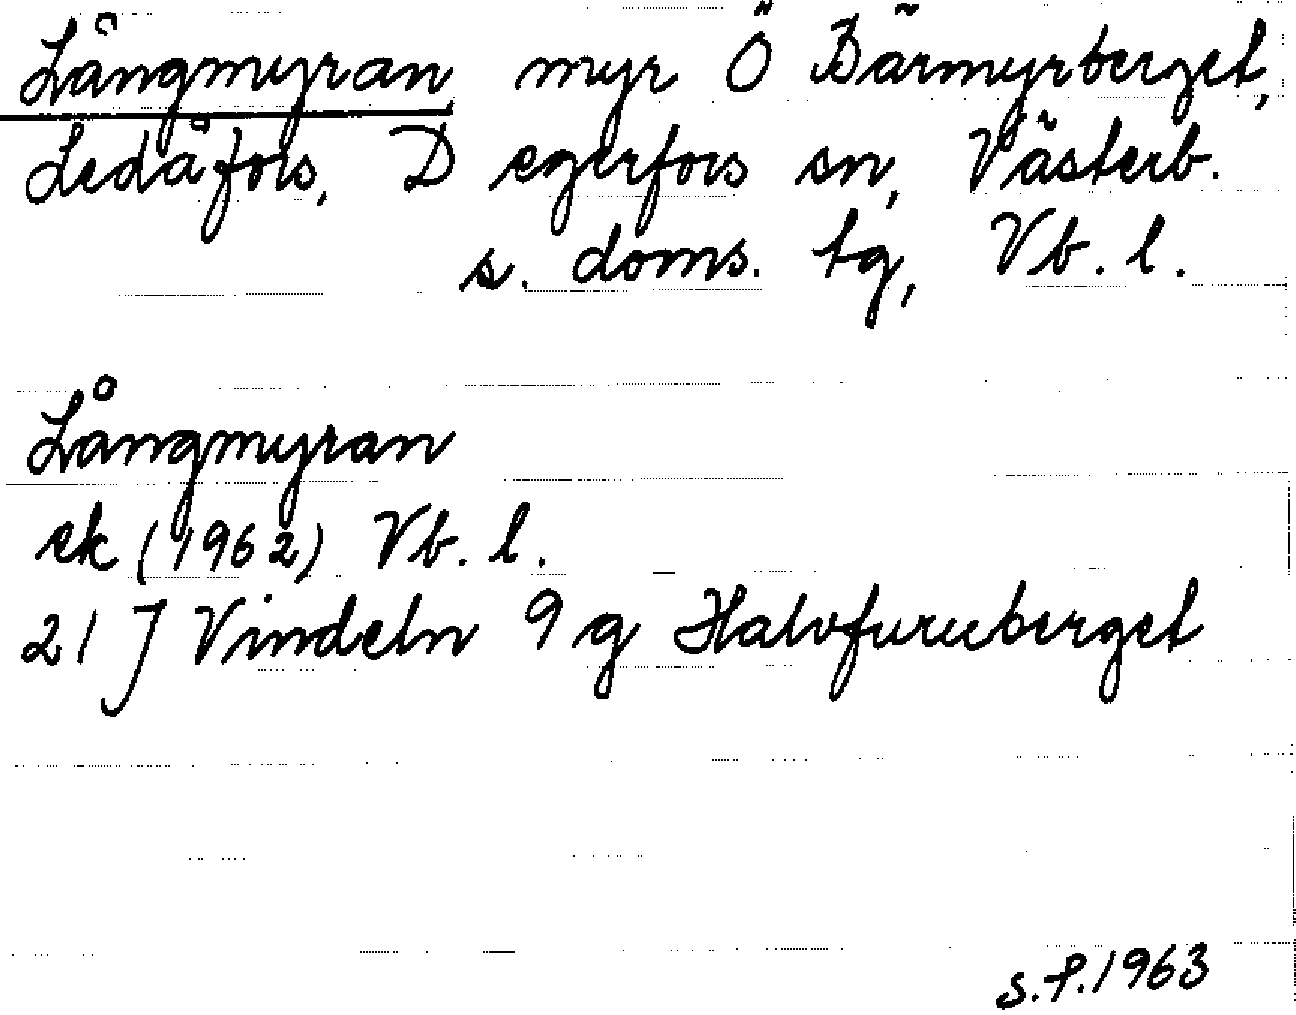 Långmyran, myr Ö Bärmyrberget,
Ledåfors, Degerfors sn, Västerb.
s. doms. tg, Vb. l.
Långmyran
ek (1962) Vb. l.
21 J Vindeln 9 g Halvfuruberget
S.P. 1963